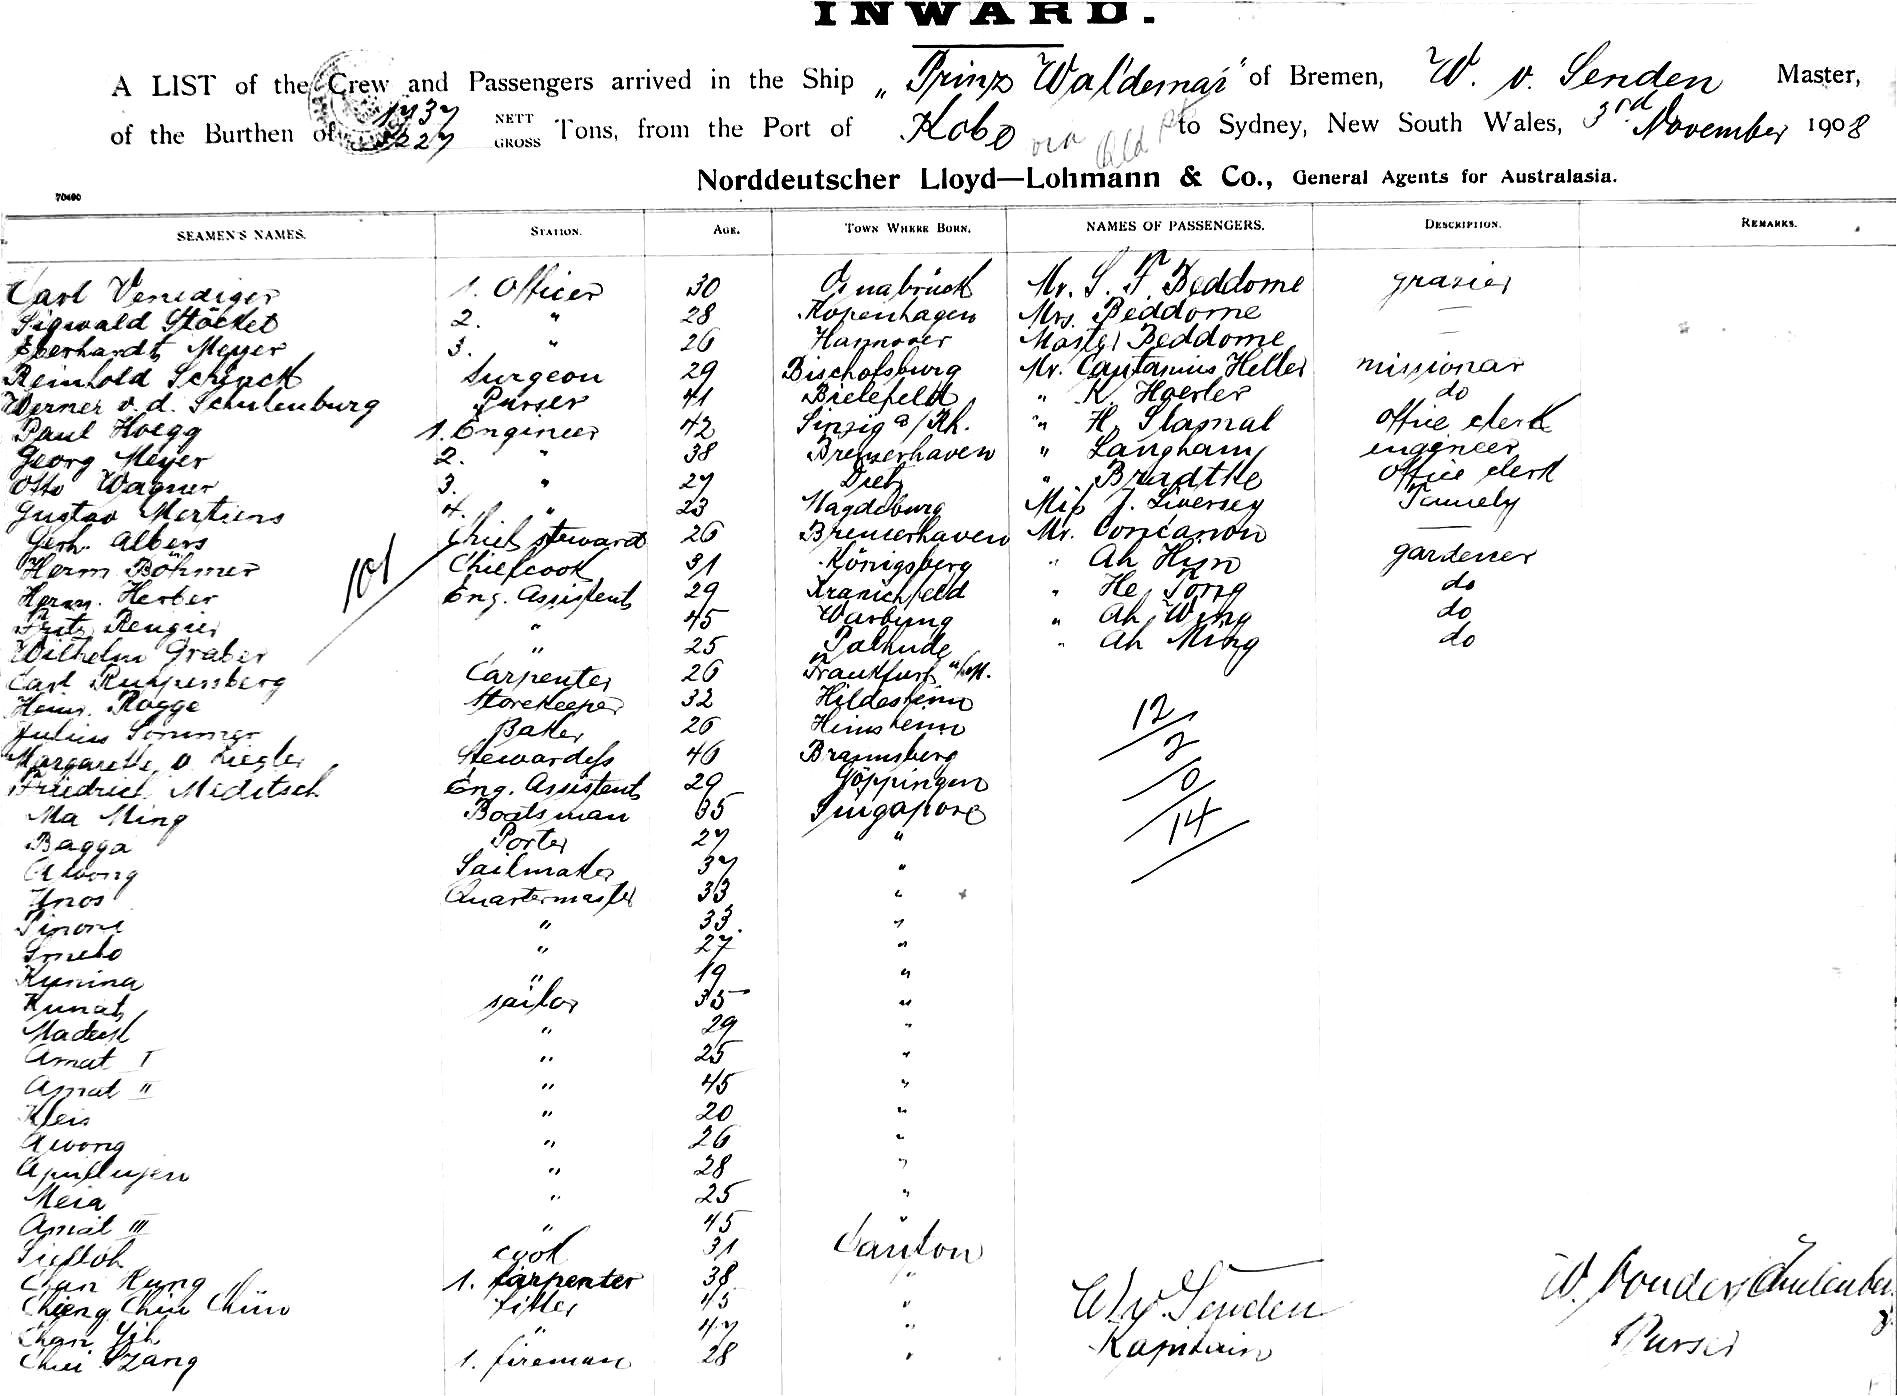 INWARD.
A LIST of the Crew and Passengers arrived in the Ship „Prinz Waldemar" of Bremen, W. v. Senden Master,
of the Burthen of 1737 3227 NETT GROSS Tons, from the Port of Kobe via to Sydney, New South Wales, 3rd November 1908
Norddeutscher Lloyd—Lohmann & Co., General Agents for Australasia.
70490
SEAMEN'S NAMES. STATION. AGE. TOWN WHERE BORN. NAMES OF PASSENGERS. DESCRIPTION. REMARKS.
Carl Venediger 1. Officer 30 Osnabrück Mr. S. F. Beddome grazier
Sigwald Stöckel 2. " 28 Kopenhagen Mrs. Beddome —
Eberhardt Meyer 3. " 26 Hannover Master Beddome —
Reinhold Schunck Surgeon 29 Bischofsburg Mr. Heller missionar
Werner v. d. Schulenburg Purser 41 Bielefeld " K. Haerler do
Paul Hoegg 1. Engineer 42 Sinzig a/Rh. " H. Slamal office clerk
Georg Meyer 2. " 38 Bremerhaven " Langham engineer
Otto Wagner 3. " 27 Dietz " Bradtke office clerk
Gustav Mertiens 4. " 23 Magdeburg Miss J. Liversey
Gerh. Albers Chief steward 26 Bremerhaven Mr. Concanon —
Herm. Böhmer Chiefcook 31 Königsberg " Ah Hun gardener
Herm. Herber Eng. Assistent 29 Kranichfeld " He Tong do
Fritz Rengier " 45 Warburg " Ah Wing do
Wilhelm Graber " 25 " Ah Ming do
101
Carl Ruppersberg Carpenter 26 Frankfurt a/M.
Heinr. Rogge Storekeeper 32 Hildesheim
Julius Sommer Baker 26
12
Margarethe v. Ziegler Stewardess 46 Braunsberg
2
Friedrich Meditsch Eng. Assistent 29 Göppingen
0
Ma Ming Boatsman 35 Singapore
14
Bagga Porter 27 "
Awong Sailmaker 37 "
Inos Quartermaster 33 "
Pinone " 33 "
" 27 "
Kunina " 19 "
Kunat sailor 35 "
" 29 "
Amat I " 25 "
Amat II " 45 "
" 20 "
Awong " 26 "
" 28 "
Meia " 25 "
Amat III " 45 "
cook 31 Canton
Chan Kung 1. carpenter 38 "
Cheng Chin Chün fitter 45 "
W v. Senden W. von der Schulenburg
Chan " 47 "
Kapitain Purser
Chui 1. fireman 28 "